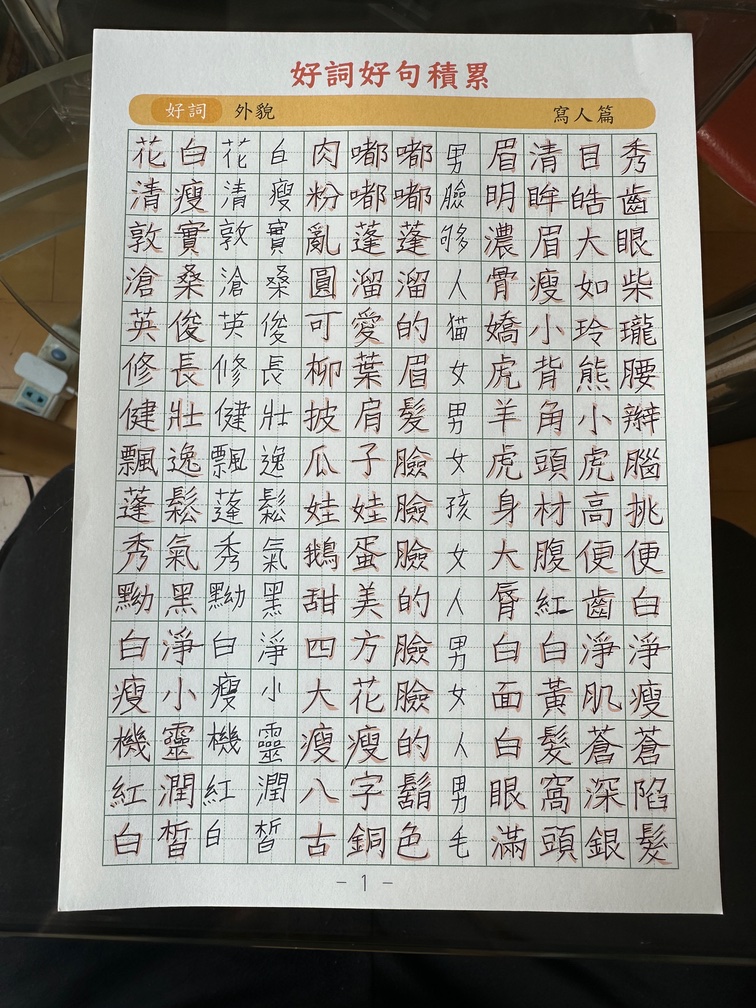 好詞好句積累
好詞 外貌 寫人篇
花白花白肉嘟嘟男眉清目秀
清瘦清瘦粉嘟嘟臉明眸皓齒
敦實敦實亂蓬蓬够濃眉大眼
滄桑滄桑圓溜溜人骨瘦如柴
英俊英俊可愛的猫嬌小玲瓏
修長修長柳葉眉女虎背熊腰
健壯健壯披肩髮男羊角小辮
飄逸飄逸瓜子臉女虎頭虎腦
蓬鬆蓬鬆娃娃臉孩身材高挑
秀氣秀氣鵝蛋臉女大腹便便
黝黑黝黑甜美的人脣紅齒白
白淨白淨四方臉男白白淨淨
瘦小瘦小大花臉女面黃肌瘦
機靈機靈瘦瘦的人白髮蒼蒼
紅潤紅潤八字鬍男眼窩深陷
白皙白皙古銅色毛滿頭銀髮
- 1 -